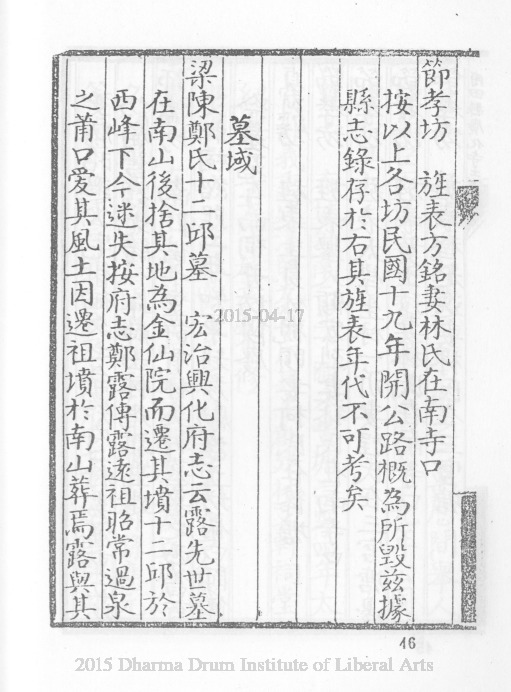 節孝坊　旌表方銘妻林氏在南寺口
按以上各坊民國十九年開公路概為所毀茲據
縣志錄存於右其旌表年代不可考矣
墓域
梁陳鄭氏十二邱墓　宏治興化府志云露先世墓
在南山後捨其地為金仙院而遷其墳十二邱於
西峰下今迷失按府志鄭露傳露遠祖昭常過泉
之莆口愛其風土因遷祖墳於南山葬焉露與其
2015-04-17
46
2015 Dharma Drum Institute of Liberal Arts